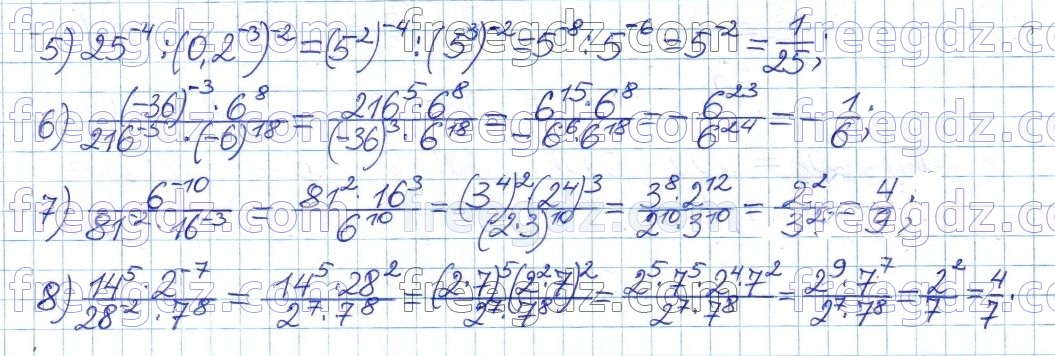 freegdz.com
5) 25⁻⁴ : (0,2⁻³)⁻² = (5⁻²)⁻⁴ : (5³)⁻² = 5⁻⁸ : 5⁻⁶ = 5⁻² = 1/25;
6) (-36)⁻³ · 6⁸ / 216⁻⁵ · (-6)¹⁸ = 216⁵ · 6⁸ / (-36)³ · 6¹⁸ = 6¹⁵ · 6⁸ / -6⁶ · 6¹⁸ = - 6²³ / 6²⁴ = - 1/6;
7) 6⁻¹⁰ / 81⁻² · 16⁻³ = 81² · 16³ / 6¹⁰ = (3⁴)² (2⁴)³ / (2·3)¹⁰ = 3⁸ · 2¹² / 2¹⁰ · 3¹⁰ = 2² / 3² = 4/9;
8) 14⁵ · 2⁻⁷ / 28⁻² · 7⁸ = 14⁵ · 28² / 2⁷ · 7⁸ = (2·7)⁵ (2²·7)² / 2⁷ · 7⁸ = 2⁵ · 7⁵ · 2⁴ · 7² / 2⁷ · 7⁸ = 2⁹ · 7⁷ / 2⁷ · 7⁸ = 2² / 7 = 4/7.